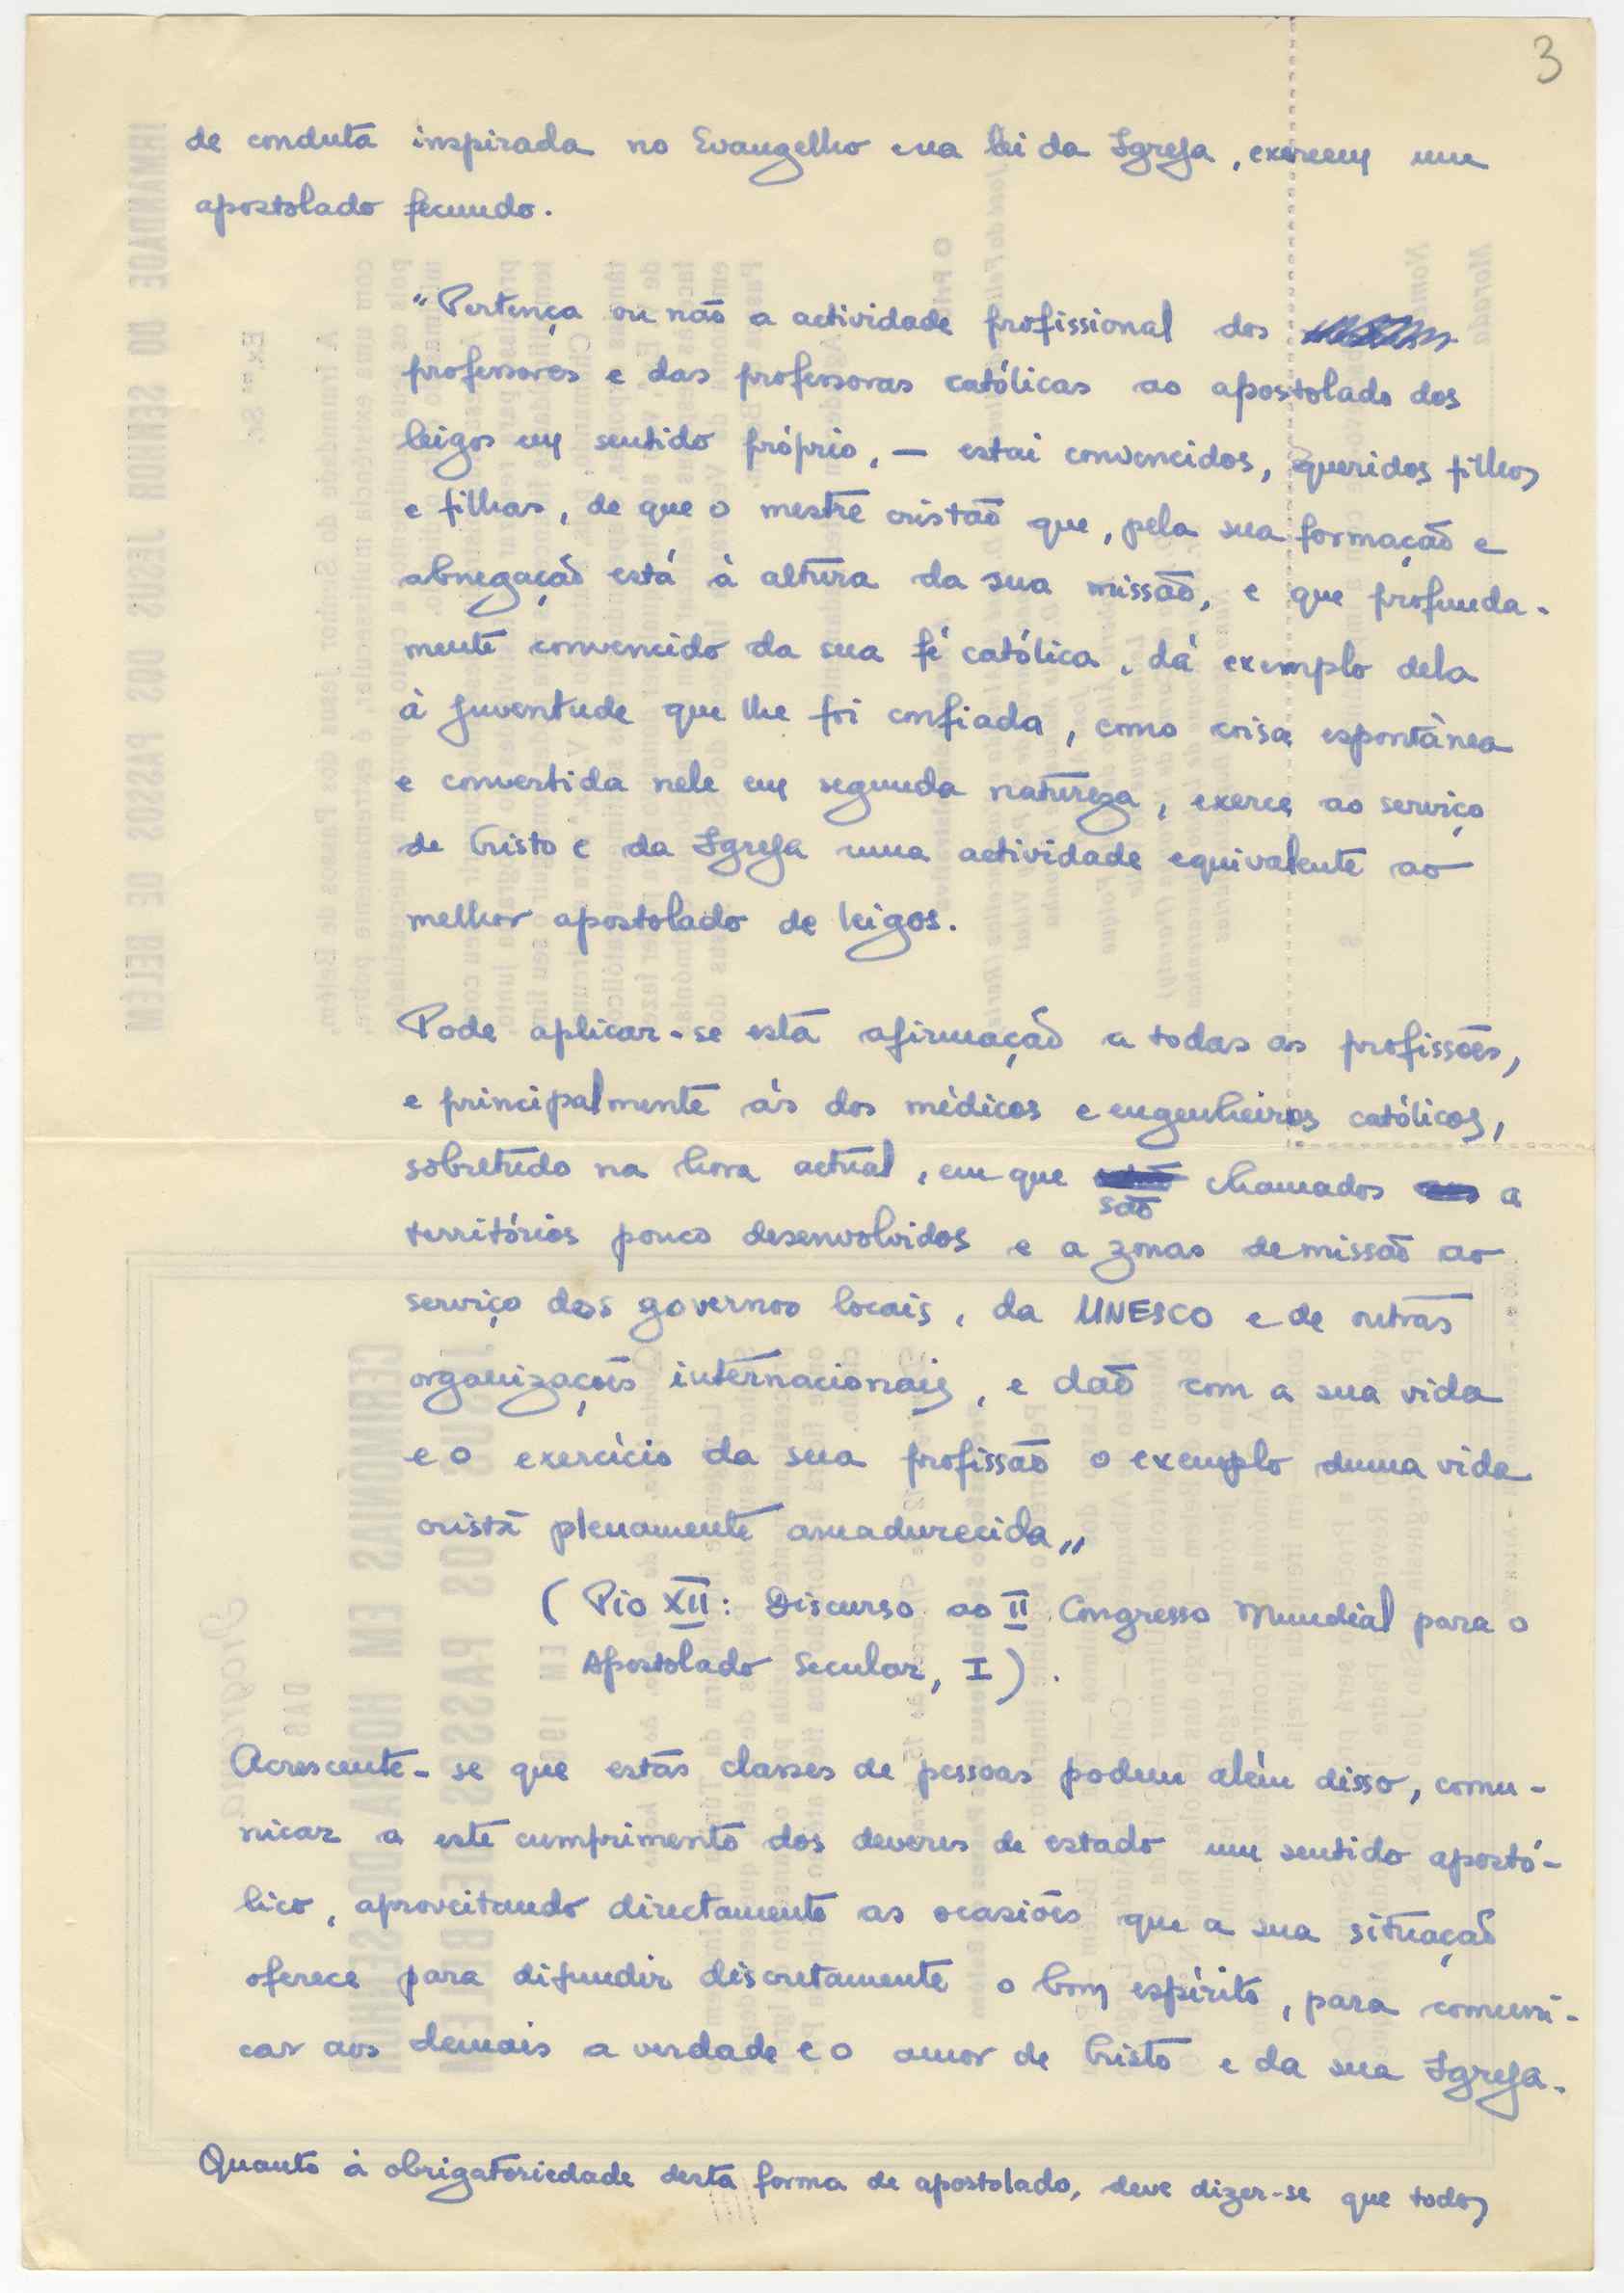 3
de conduta inspirada no Evangelho e na lei da Igreja, exercem um
apostolado fecundo.
"Pertença ou não a actividade profissional dos
professores e das professoras católicas ao apostolado dos
leigos em sentido próprio, — estai convencidos, queridos filhos
e filhas, de que o mestre cristão que, pela sua formação e
abnegação está à altura da sua missão, e que profunda-
mente convencido da sua fé católica, dá exemplo dela
à juventude que lhe foi confiada, como coisa espontânea
e convertida nele em segunda natureza, exerce ao serviço
de Cristo e da Igreja uma actividade equivalente ao
melhor apostolado de leigos.
Pode aplicar-se esta afirmação a todas as profissões,
e principalmente às dos médicos e engenheiros católicos,
sobretudo na hora actual, em que são chamados a
territórios pouco desenvolvidos e a zonas de missão ao
serviço dos governos locais, da UNESCO e de outras
organizações internacionais, e dão com a sua vida
e o exercício da sua profissão o exemplo duma vida
cristã plenamente amadurecida„
(Pio XII: Discurso ao II Congresso Mundial para o
Apostolado Secular, I).
Acrescente-se que estas classes de pessoas podem além disso, comu-
nicar a este cumprimento dos deveres de estado um sentido apostó-
lico, aproveitando directamente as ocasiões que a sua situação
oferece para difundir discretamente o bom espírito, para comuni-
car aos demais a verdade e o amor de Cristo e da sua Igreja.
Quanto à obrigatoriedade desta forma de apostolado, deve dizer-se que todos